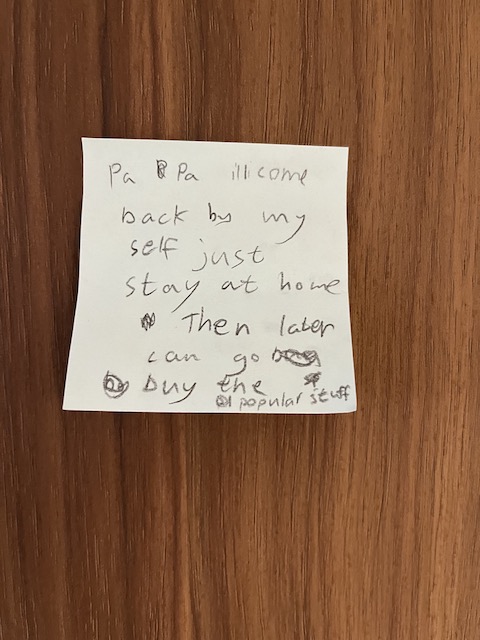 Pa Pa ill come
back by my
self just
stay at home
Then later
can go
buy the
popular stuff